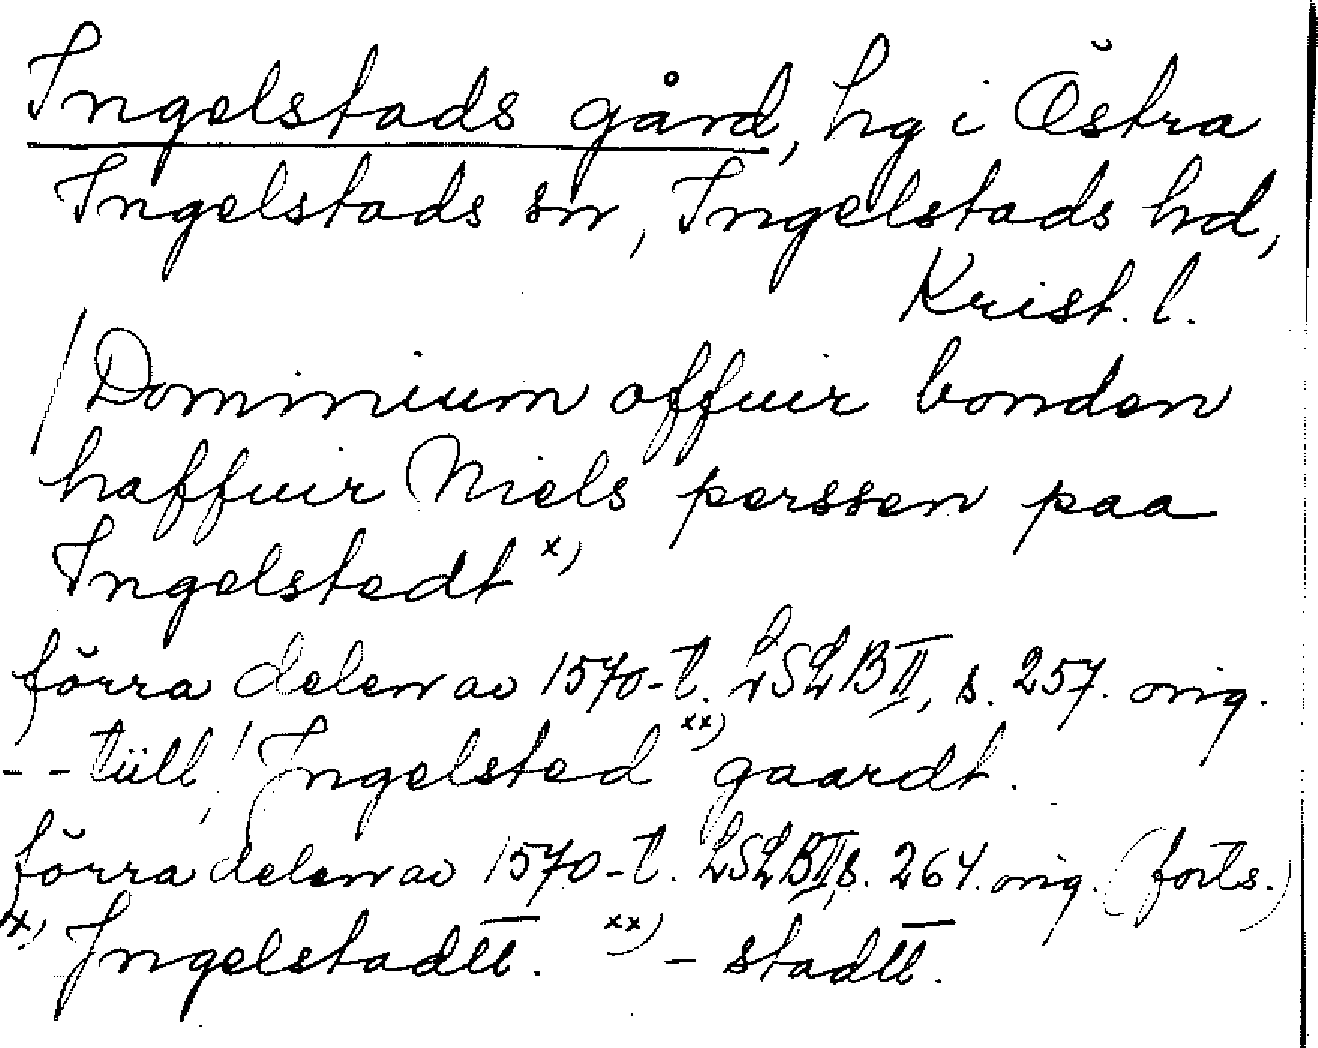 Ingelstads gård, hg i Östra
Ingelstads sn, Ingelstads hd,
Krist. l.
/Dominium offuir bonden
haffuir Niels perssen paa
Ingelstedt x)
förra delen av 1570-t. LSLB II, s. 257. orig.
-- tüll! Ingelsted xx) gaardt.
förra delen av 1570-t. LSLB II, s. 264. orig. (forts.)
x) Ingelstadtt. xx) -stadtt.